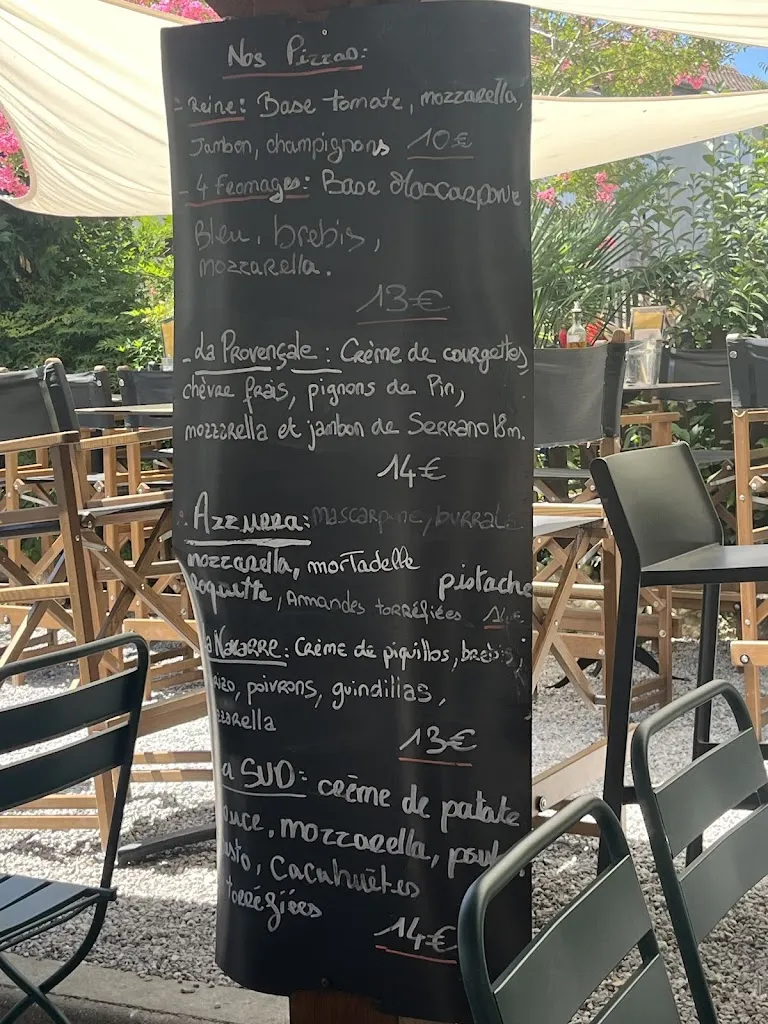 Nos Pizzas:
- Reine: Base tomate, mozzarella,
Jambon, champignons 10€
- 4 Fromages: Base Mascarpone
Bleu, brebis,
mozzarella.
13€
- La Provençale: Crème de courgettes,
chèvre frais, pignons de Pin,
mozzarella et jambon de Serrano 18m.
14€
Azzurra: mascarpone, burrata
mozzarella, morTadelle pistache
Roquette, Amandes torréfiées
Navarre: Crème de piquillos, brebis,
poivrons, guindillas,
13€
SUD: crème de patate
mozzarella,
Cacahuètes
torréfiées
14€